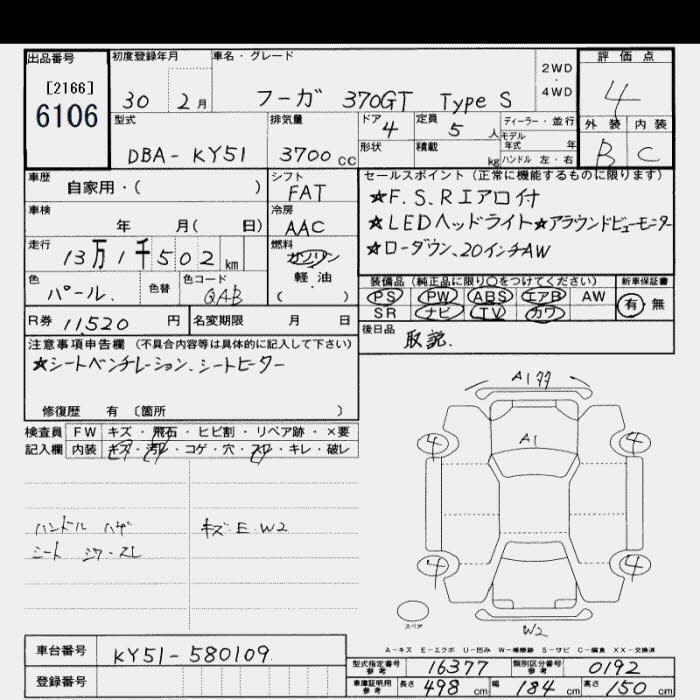 出品番号
[2166]
6106
初度登録年月
30 2月
車名・グレード
フーガ 370GT Type S
2WD
・
4WD
評価点
4
外装 内装
B C
型式
DBA-KY51
排気量
3700cc
ドア
4
定員
5人
形状
積載
kg
ディーラー・並行
モデル年式 年
ハンドル 左・右
車歴
自家用・( )
シフト
FAT
車検
年 月( 日)
冷房
AAC
走行
13万1千502km
燃料
ガソリン
軽・油
( )
色
パール.
色替
色コード
QAB
R券 11,520 円
名変期限 月 日
セールスポイント(正常に機能するものに限ります)
★F.S.Rエアロ付
★LEDヘッドライト★アラウンドビューモニター
★ローダウン、20インチAW
装備品(純正品に限り○をつけてください)
新車保証書
PS PW ABS エアB AW
SR ナビ TV カワ
有・無
後日品
取説.
注意事項申告欄(不具合内容等は具体的に記入して下さい)
★シートベンチレーション、シートヒーター
修復歴 有 〔箇所 〕
検査員記入欄
FW キズ・飛石・ヒビ割・リペア跡・×要
内装 キズ・汚レ・コゲ・穴・スレ・キレ・破レ
ハンドル ハゲ
シート シワ・スレ
キズ E W2
A177
A1
4 4
4 4
スペア
W2
A-キズ E-エクボ U-凹み W-補修跡 S-サビ C-腐食 XX-交換済
車台番号 KY51-580109
登録番号
型式指定番号参考 16377
類別区分番号参考 0192
車庫証明用参考 長さ 498cm 幅 184cm 高さ 150cm